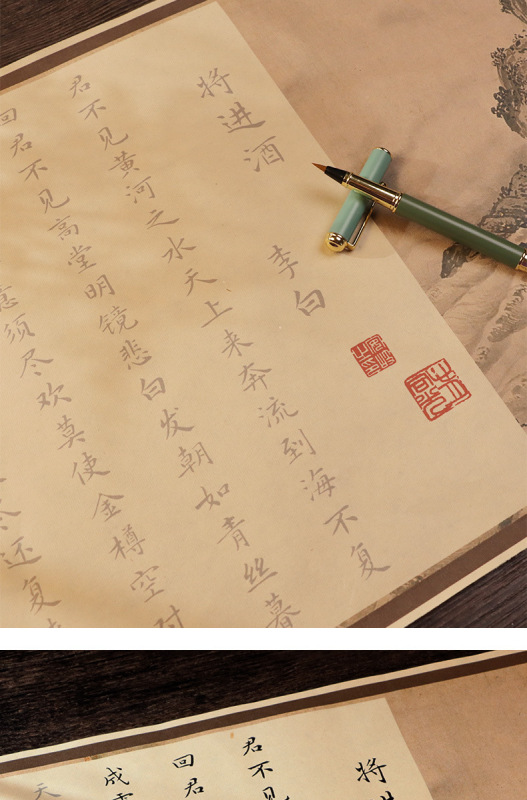 将进酒
李白
君不见黄河之水天上来奔流到海不复
回君不见高堂明镜悲白发朝如青丝暮
意须尽欢莫使金樽空对
尽还复
将
君不见
回君
成雪
天